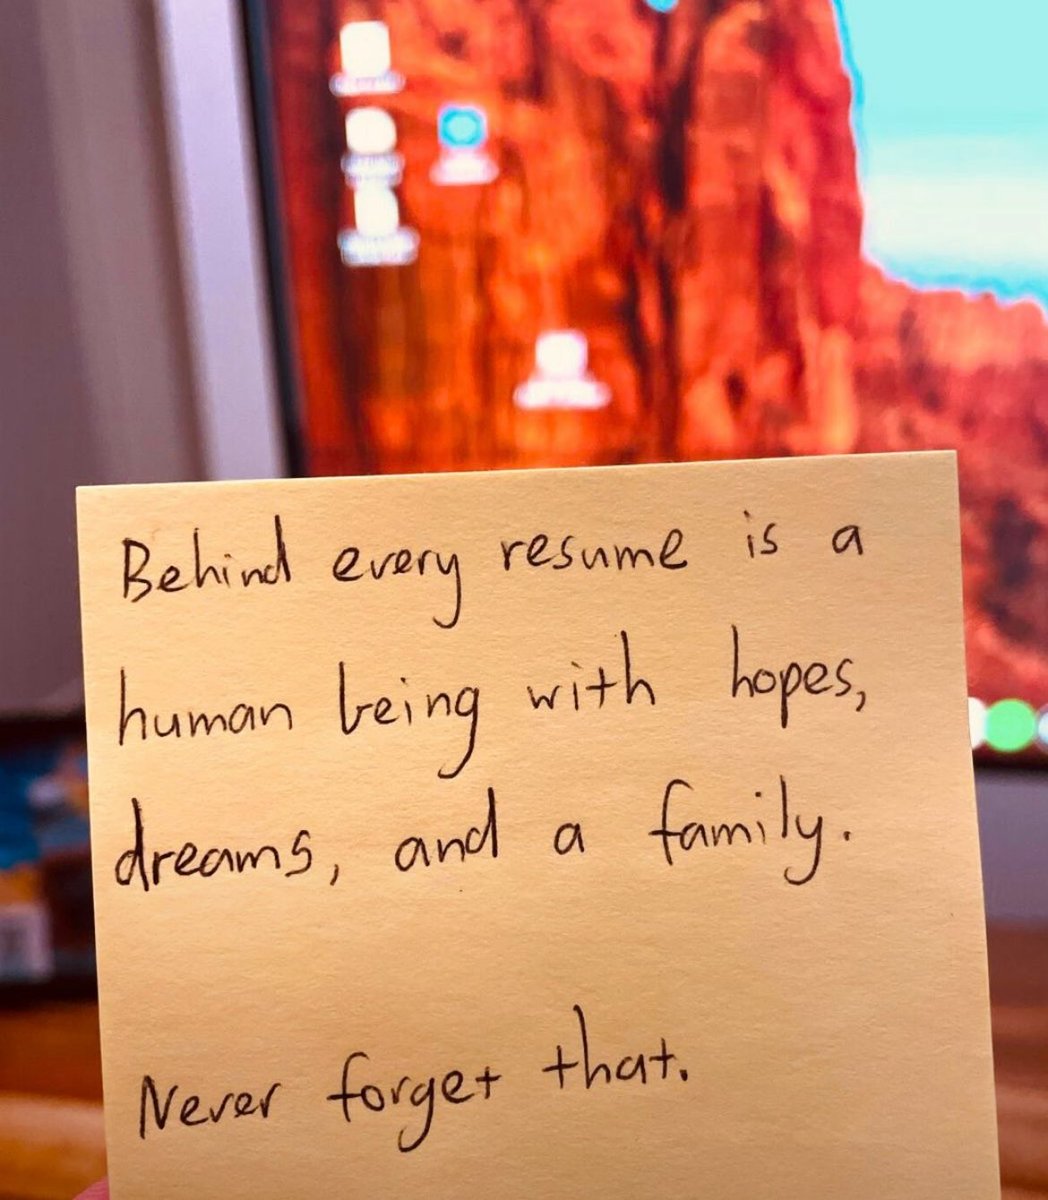 Behind every resume is a
human being with hopes,
dreams, and a family.
Never forget that.